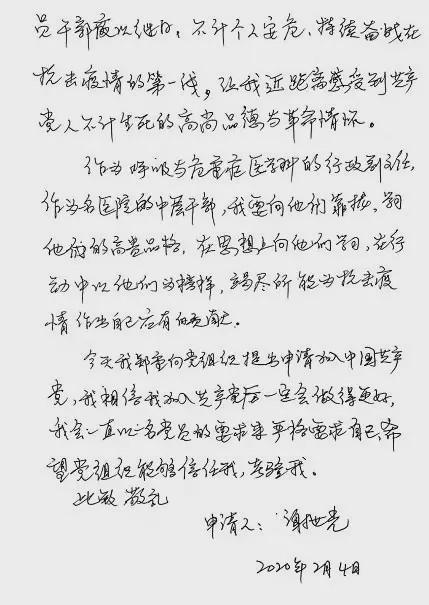 员干部夜以继日，不计个人安危，持续奋战在
抗击疫情的第一线。让我近距离感受到共产
党人不计生死的高尚品德与革命情怀。
作为呼吸与危重症医学科的行政副主任，
作为名医院的中层干部，我要向他们靠拢，学习
他们的高贵品格，在思想上向他们学习，在行
动中以他们为榜样，竭尽所能为抗击疫
情作出自己应有的贡献。
今天我郑重向党组织提出申请加入中国共产
党，我相信我加入共产党后一定会做得更好，
我会一直以一名党员的要求来严格要求自己，希
望党组织能够信任我，考验我。
此致 敬礼
申请人：
2020年2月4日